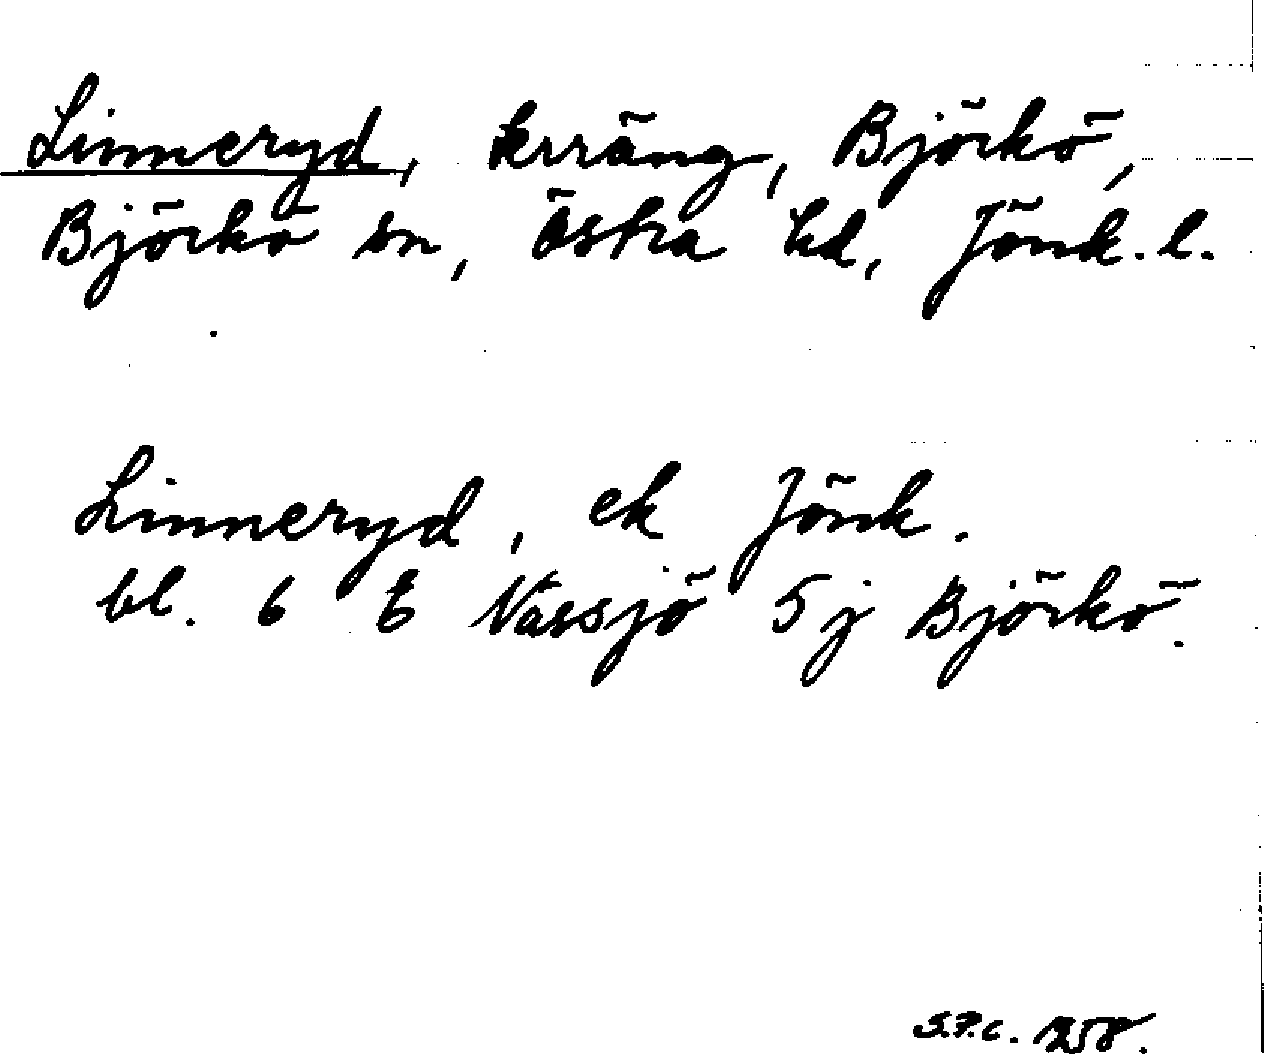 Linneryd, terräng, Björkö,
Björkö sn, Östra hd, Jönk. l.
Linneryd, ek Jönk.
bl. 6 E Nässjö 5j Björkö.
S.P.C. 1958.